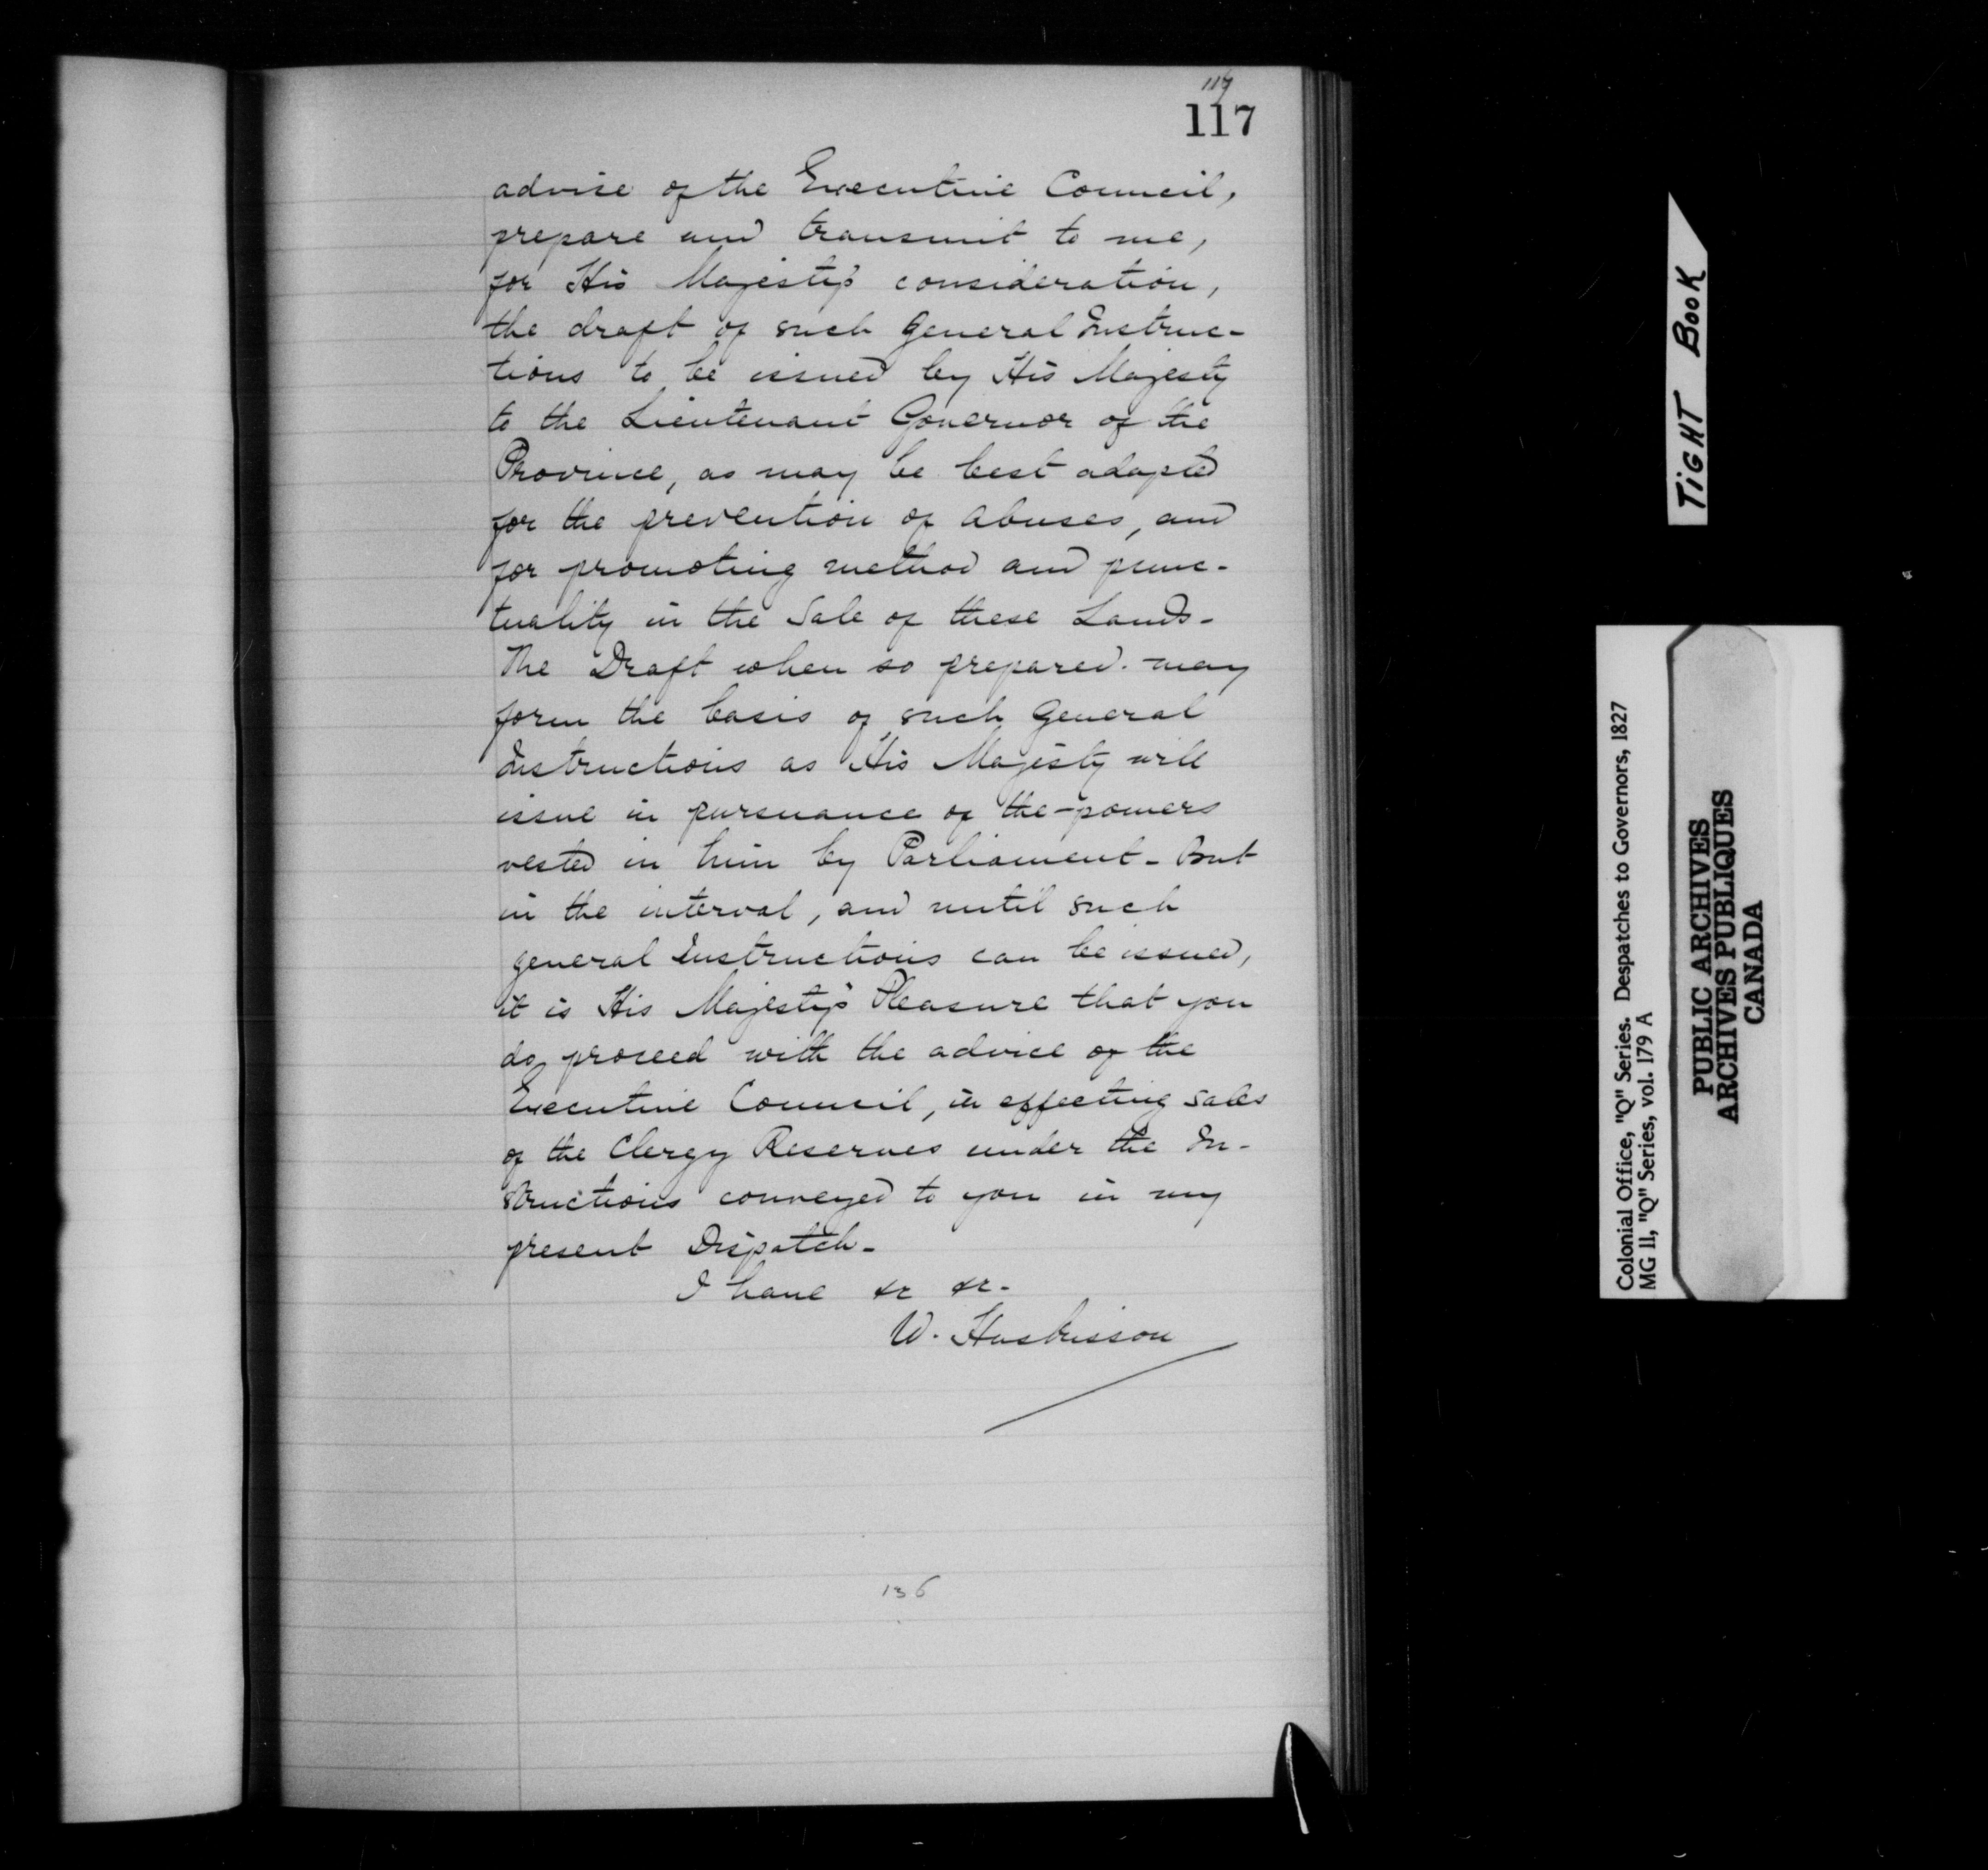 117
117
advise of the Executive Council,
prepare and transmit to me,
for His Majesty's consideration,
the draft of such General Instruc-
tions to be issued by His Majesty
to the Lieutenant Governor of the
Province, as may be best adapted
for the prevention of abuses, and
for promoting method and punc-
tuality in the Sale of these Lands-
The Draft when so prepared. may
form the basis of such General
Instructions as His Majesty will
issue in pursuance of the-powers
vested in him by Parliament- But
in the interval, and until such
general Instructions can be issued,
it is His Majesty's Pleasure that you
do proceed with the advice of the
Executive Council, in effecting sales
of the Clergy Reserves under the In-
structions conveyed to you in my
present Dispatch-
I have &c &c-
W. Huskisson
136
TIGHT BOOK
Colonial Office, "Q" Series. Despatches to Governors, 1827
MG 11, "Q" Series, vol. 179 A
PUBLIC ARCHIVES
ARCHIVES PUBLIQUES
CANADA